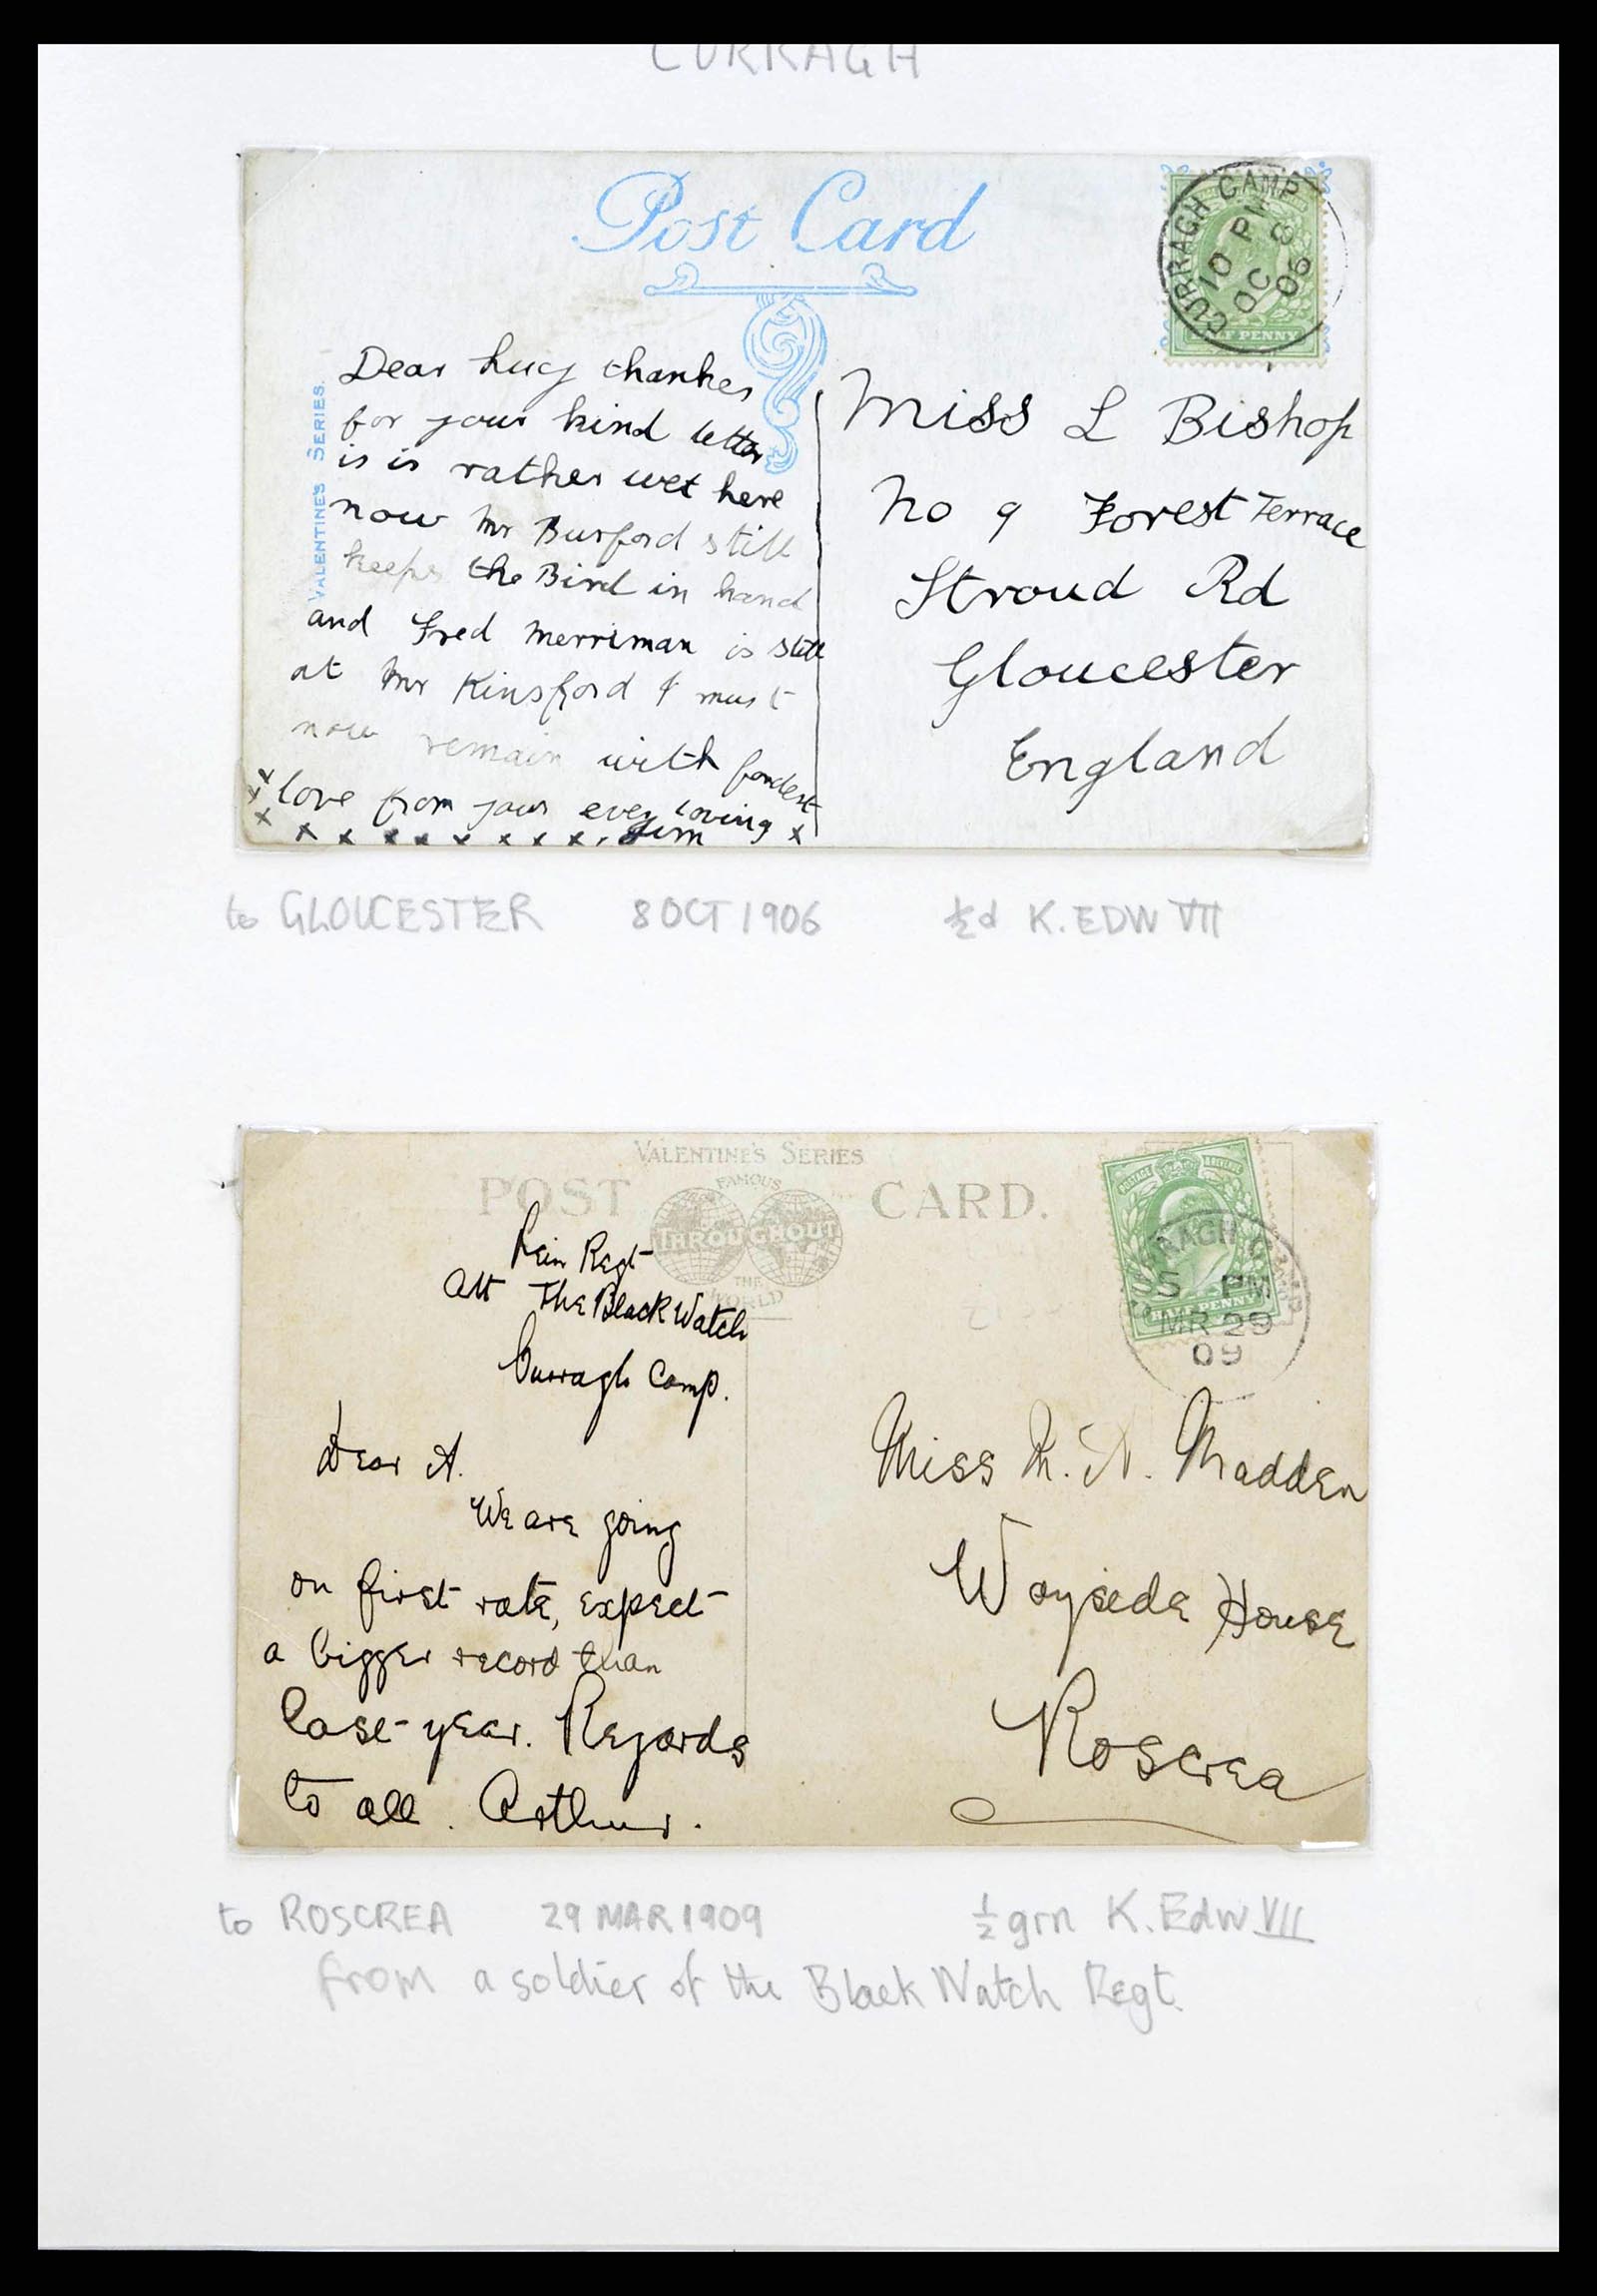 CURRAGH
Post Card
CURRAGH CAMP
10 PM
OC 8
06
HALF PENNY
VALENTINE'S SERIES.
Dear Lucy thankes
for your kind letter
is is rather wet here
now Mr Burford still
keeps the Bird in hand
and Fred Merriman is still
at Mr Kinsford I must
now remain with fondest
love from your ever loving
Jim
x x x x x x x x x x x x
Miss L Bishop
No 9 Forest Terrace
Stroud Rd
Gloucester
England
to GLOUCESTER 8 OCT 1906 ½d K. EDW VII
VALENTINE'S SERIES
POST CARD.
FAMOUS
THROUGHOUT
THE
WORLD
POSTAGE REVENUE
HALF PENNY
CURRAGH CAMP
PM
MR 29
09
Lein Regt
Att The Black Watch
Curragh Camp.
Dear A.
We are going
on first rate, expect
a bigger record than
last year. Regards
to all. Arthur.
Miss M. A. Madden
Wayside House
Roscrea
to ROSCREA 29 MAR 1909 ½ grn K. Edw VII
from a soldier of the Black Watch Regt.